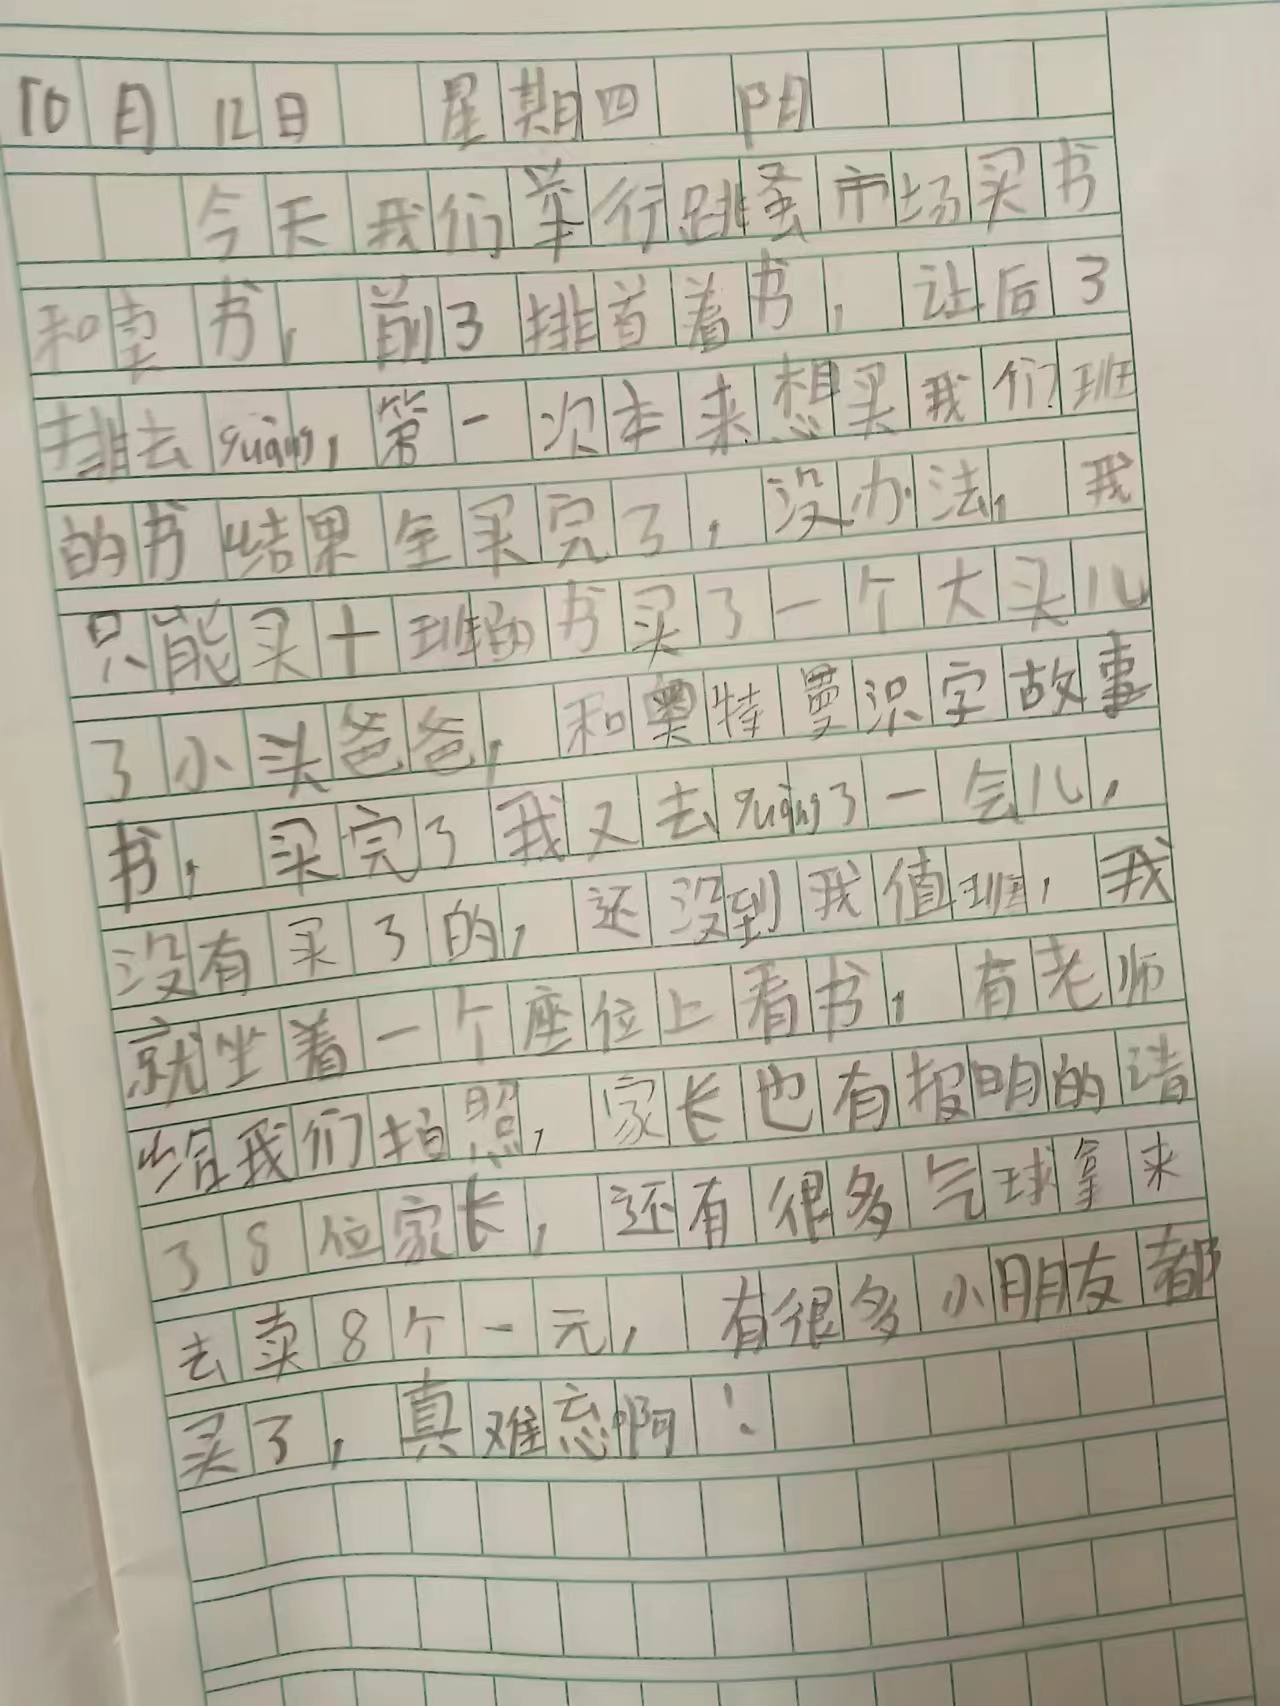 10月12日 星期四 阴
今天我们举行跳蚤市场买书
和卖书，前3排首着书，让后3
排去guàng，第一次本来想买我们班
的书结果全买完了，没办法，我
只能买十班的书买了一个大头儿
了小头爸爸，和奥特曼识字故事
书，买完了我又去guàng了一会儿，
没有买了的，还没到我值班，我
就坐着一个座位上看书，有老师
给我们拍照，家长也有报明的请
了8位家长，还有很多气球拿来
去卖8个一元，有很多小朋友都
买了，真难忘啊！